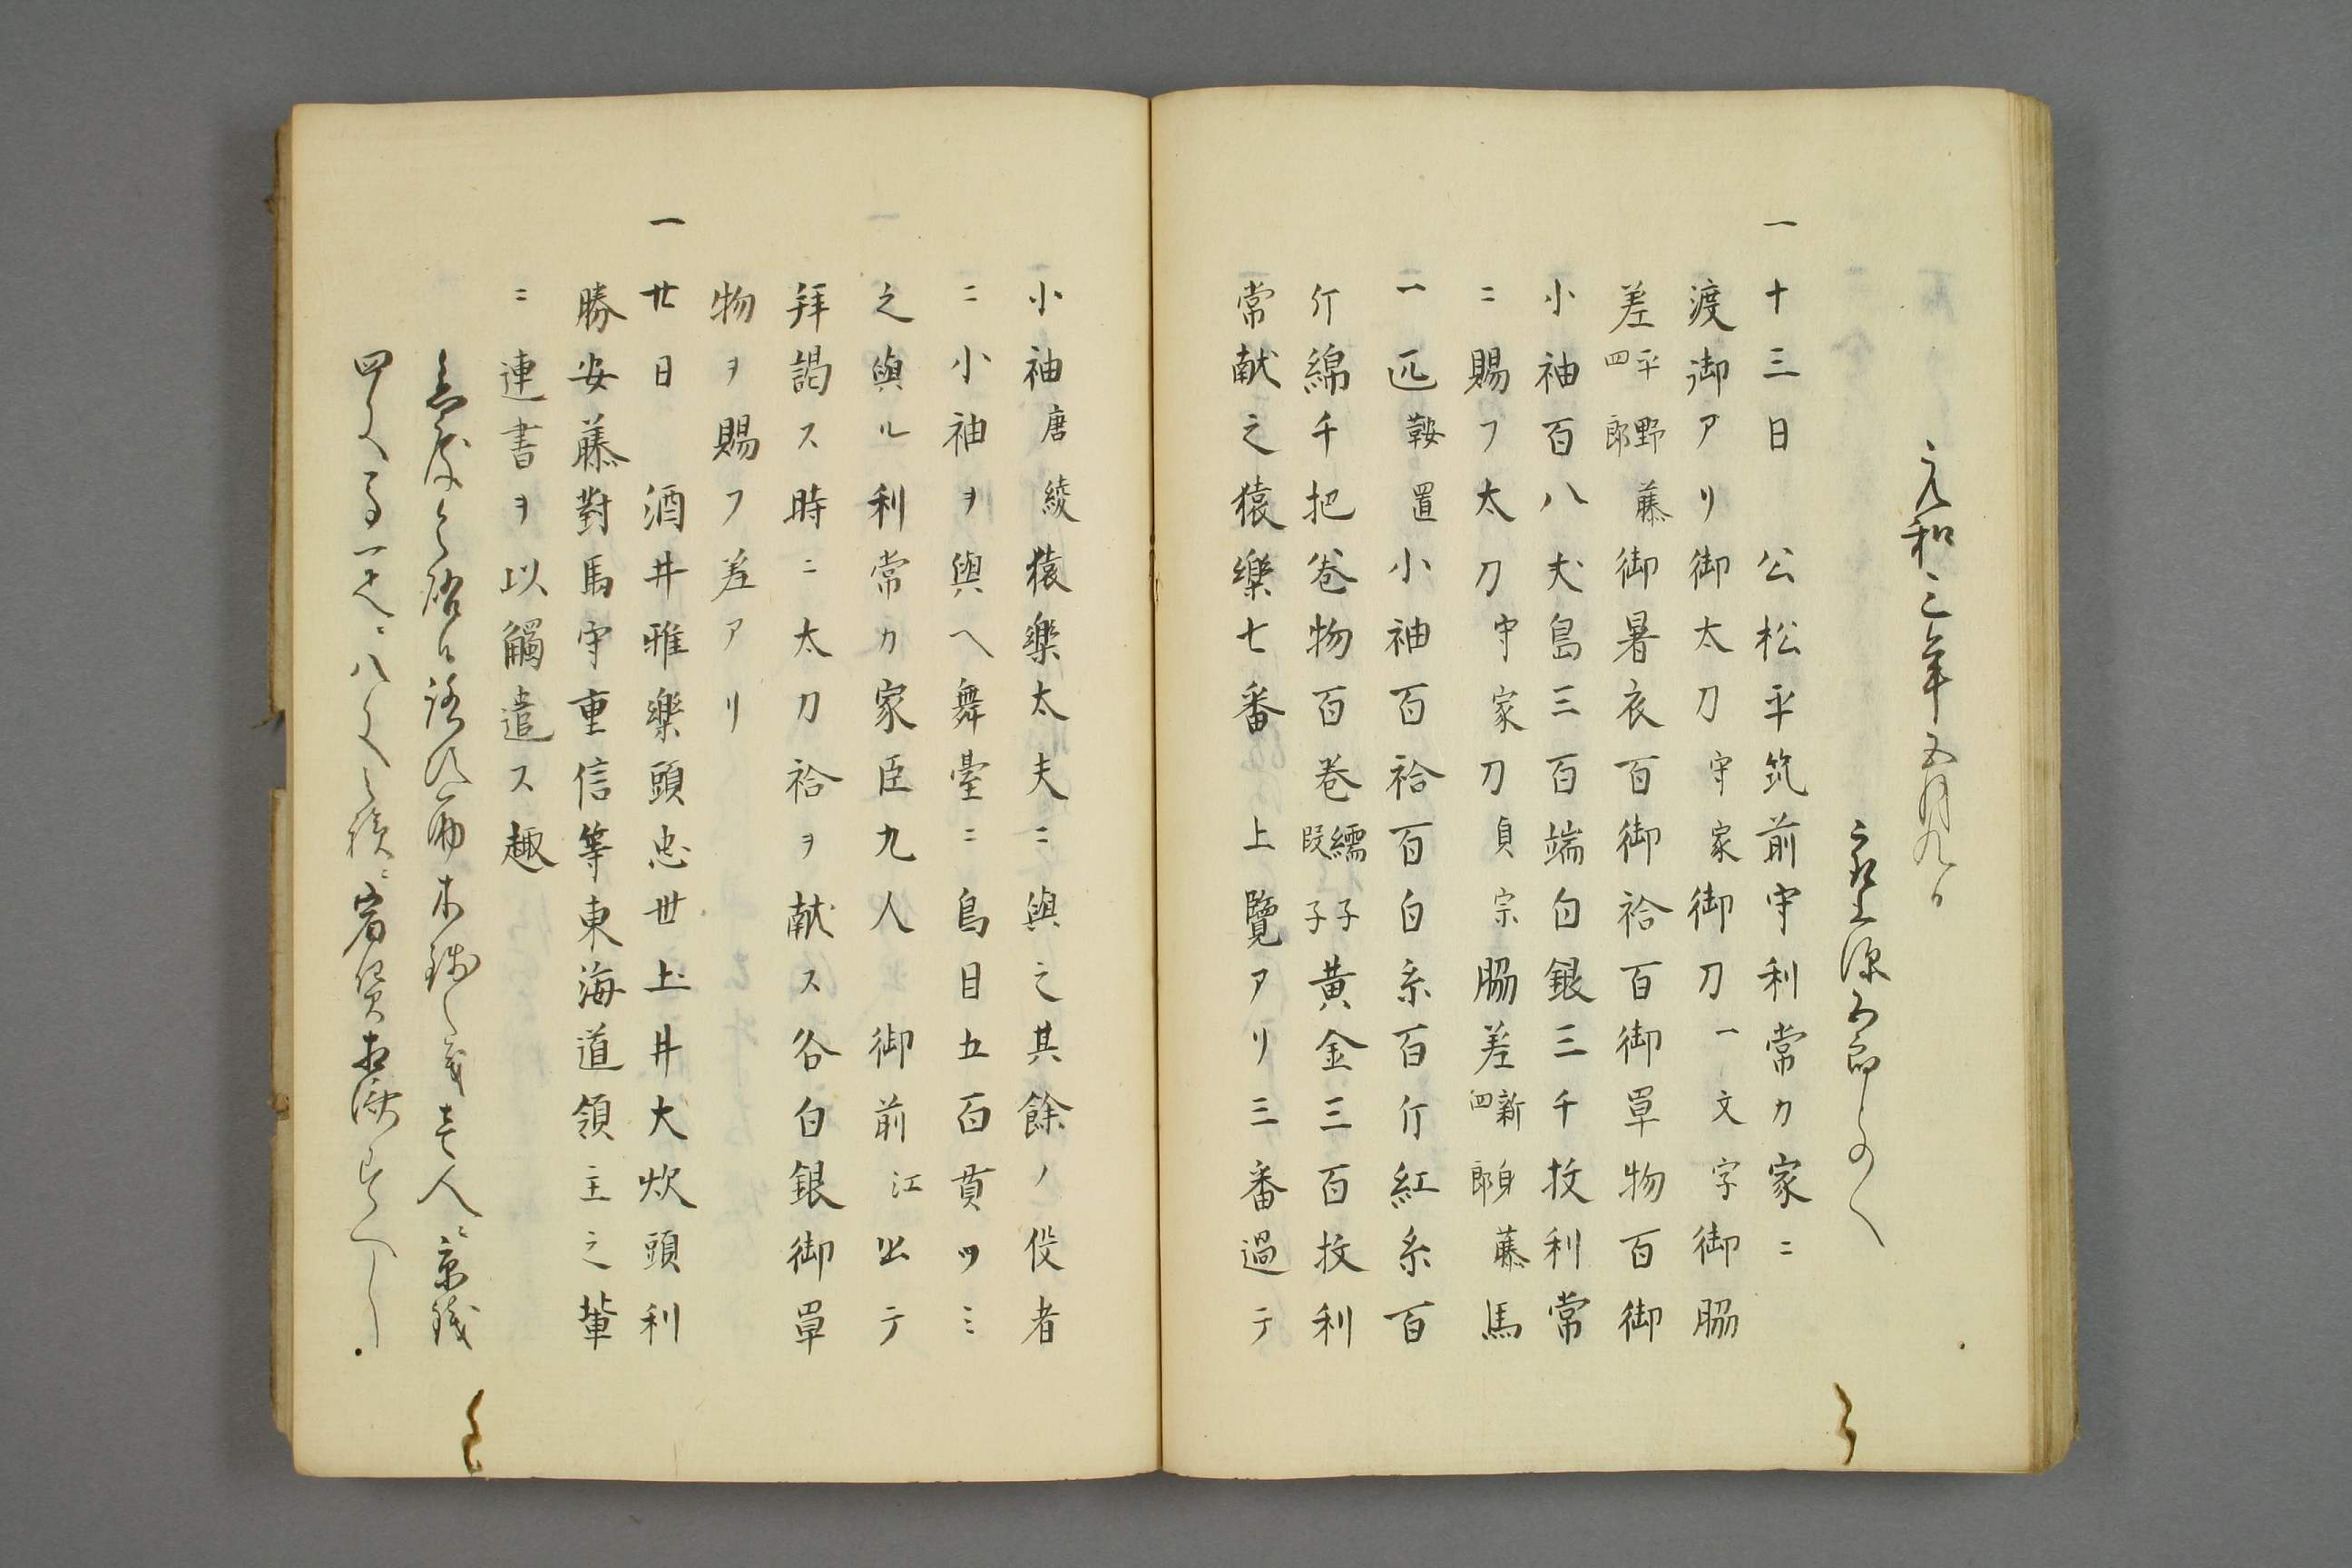 元和三年五月九日
一十三日　公松平筑前守利常カ家ニ
渡御アリ御太刀守家御刀一文字御脇
差平野藤四郎御暑衣百御袷百御單物百御
小袖百八丈島三百端白銀三千枚利常
ニ賜フ太刀守家刀貞宗脇差新身藤四郎馬
一匹鞍置小袖百袷百白糸百斤紅糸百
斤綿千把卷物百卷繻子段子黄金三百枚利
常献之猿樂七番　上覽アリ三番過テ
小袖唐綾猿樂太夫ニ與之其餘ノ役者
ニ小袖ヲ與ヘ舞臺ニ鳥目五百貫ツミ
之與ル利常カ家臣九人　御前江出テ
拜謁ス時ニ太刀袷ヲ献ス各白銀御單
物ヲ賜フ差アリ
一廿日　酒井雅樂頭忠世土井大炊頭利
勝安藤對馬守重信等東海道領主之輩
ニ連書ヲ以觸遣ス趣